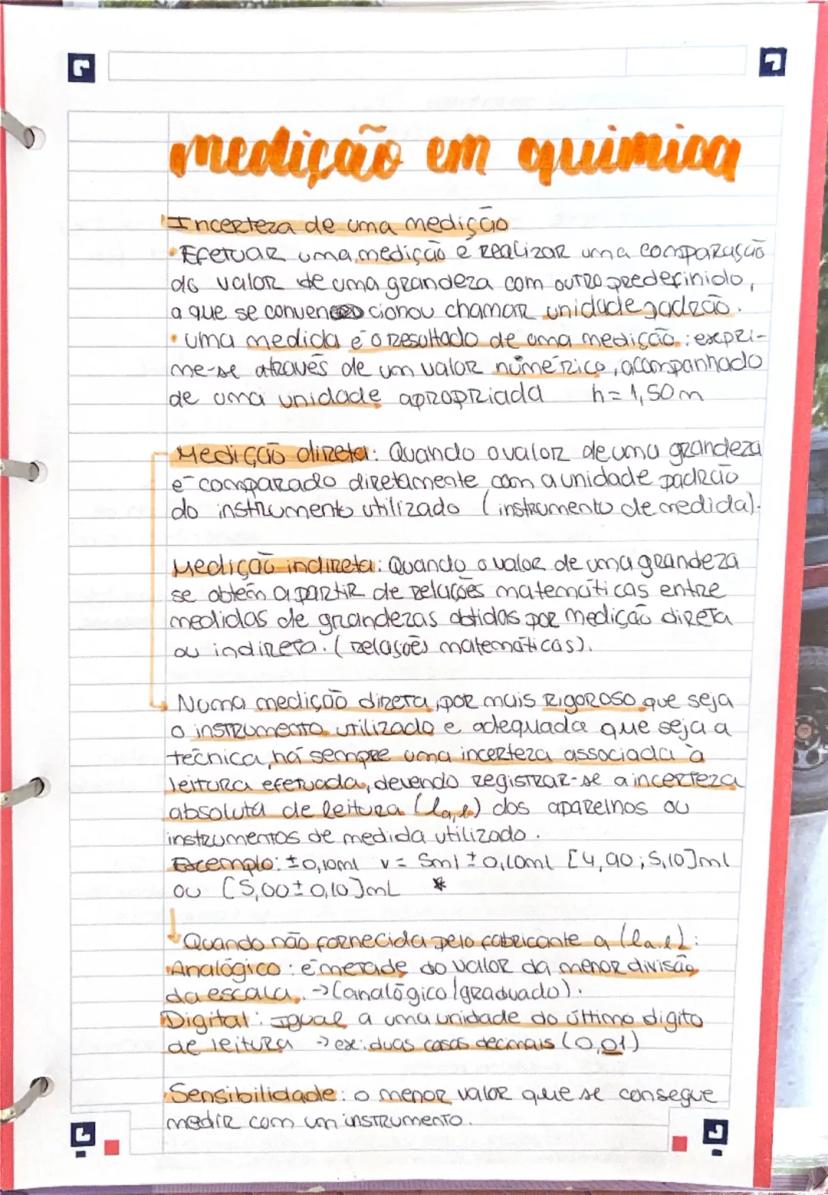 medição em quimica
Incerteza de uma medição
• Efetuar uma medição é realizar uma comparação
do valor de uma grandeza com outro predefinido,
a que se convencionou chamar unidade padrão.
• uma medida é o resultado de uma medição: expri-
me-se através de um valor númérico, acompanhado
de uma unidade apropriada h = 1,50m
Medição direta: Quando o valor de uma grandeza
é comparado diretamente com a unidade padrão
do instrumento utilizado (instrumento de medida).
Medição indireta: Quando o valor de uma grandeza
se obtém a partir de relações matemáticas entre
medidas de grandezas obtidas por medição direta
ou indireta. (relações matemáticas).
Numa medição direta, por mais rigoroso que seja
o instrumento utilizado e adequada que seja a
técnica, há sempre uma incerteza associada à
leitura efetuada, devendo registrar-se a incerteza
absoluta de leitura (la,l) dos aparelhos ou
instrumentos de medida utilizado.
Excemplo: ±0,10ml v = 5ml ± 0,10ml [4,90 ; 5,10]ml
ou [5,00 ± 0,10]mL *
↓ Quando não fornecida pelo fabricante a (la.l):
• Analógico: é metade do valor da menor divisão
da escala. → (analógico/graduado).
Digital: Igual a uma unidade do último digito
de leitura → ex: duas casas decmais (0,01)
• Sensibilidade: o menor valor que se consegue
medir com um instrumento.